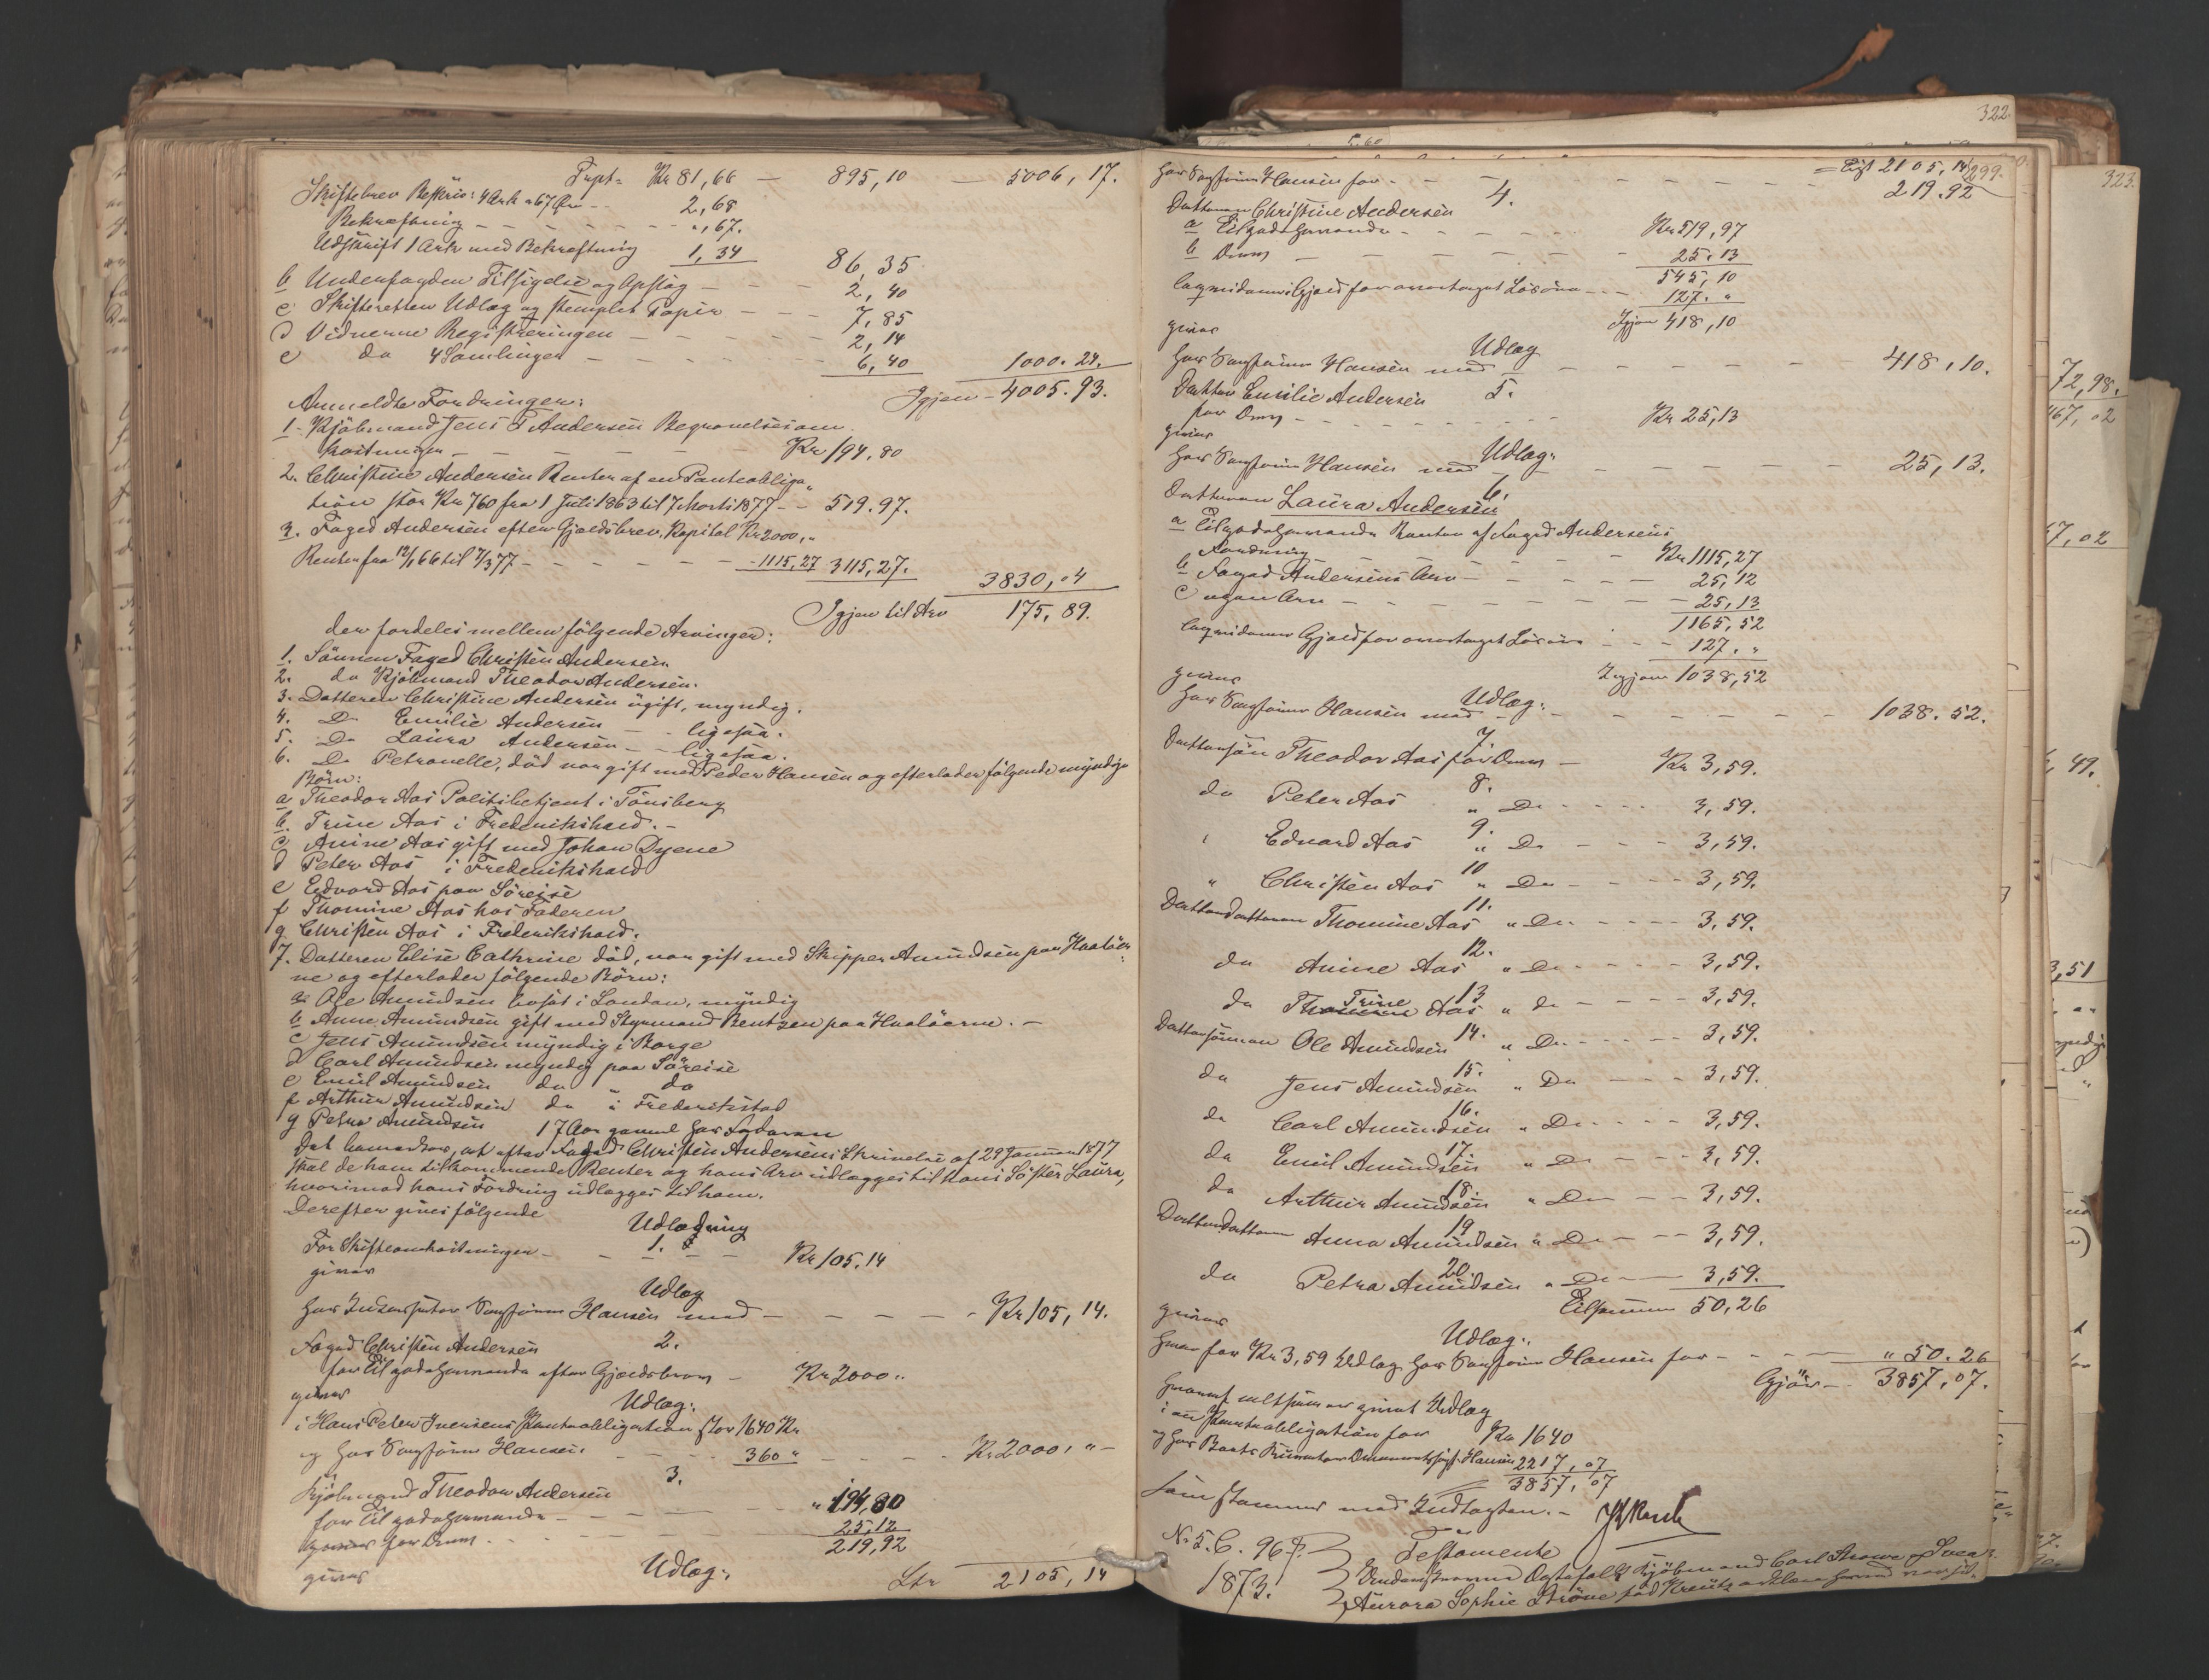 Trpt= Kr 81,66 — 895,10 — 5006,17.
Skiftebrev Beskriv: 4 Ark a 67 Øre - - 2,68
Bekræftning - - - - - - ",67.
Udskrift 1 Ark med Bekræftning 1,34 86,35
b Underfogden Tilsigelse og Opslag - - - 2,40
c Skifteretten Udlæg og stemplet Papir - - - 7,85
d Vidnerne Registreringen - - - - - 2,14
e do 4 Samlinger - - - - - 6,40 1000.24.
Igjen - 4005.93.
Anmeldte Fordringer:
1. Kjöbmand Jens T Andersen Begravelsesom
kostninger - - - - - - Kr 194.80
2. Christine Andersen Renter af en Panteobliga„
tion stor Kr 760 fra 1 Juli 1863 til 7 Marts 1877 - - 519.97.
3. Foged Andersen efter Gjældsbrev, Kapital Kr 2000,"
Renter fra 12/1 66 til 7/3 77 - - - - - - 1115,27 3115,27. 3830,04
Igjen til Arv 175,89.
der fordeles mellem fölgende Arvinger:
1. Sönnen Foged Christen Andersen
2. do Kjöbmand Theodor Andersen.
3. Datteren Christine Andersen ugift, myndig.
4. Do Emilie Andersen - - ligesaa.
5. Do Laura Andersen - - ligesaa.
6. Do Petronelle, död var gift med Peder Hansen og efterlader fölgende myndige
Börn:
a Theodor Aas Politibetjent i Tönsberg
b. Trine Aas i Frederikshald. -
c Anine Aas gift med Johan Dyene
d Peter Aas i Frederikshald
e Edvard Aas paa Söreise
f Thomine Aas hos Faderen
g Christen Aas i Frederikshald.
7. Datteren Elise Cathrine död, var gift med Skipper Amundsen paa Hvalöer
ne og efterlader fölgende Börn:
a Ole Amundsen bosat i London, myndig
b Anne Amundsen gift med Styrmand Bentzen paa Hvalöerne. -
c Jens Amundsen myndig i Borge
d Carl Amundsen myndig paa Söreise
e Emil Amundsen do " do
f Arthur Amundsen do i Frederikstad
g Petra Amundsen 17 Aar gammel hos Faderen
Det bemærkes, at efter Foged Christen Andersens Skrivelse af 29 Januar 1877
skal de ham tilkommende Renter og hans Arv udlægges til hans Söster Laura,
hvorimod hans Fordring udlægges til ham.
Derefter gives fölgende
Udlægning
1.
For Skifteomkostninger - - - - Kr 105.14
gives
Udlæg
hos Sagförer Hansen med - - - - - Kr 105,14.
2.
Foged Christen Andersen
for Tilgodehavende efter Gjældsbrev - Kr 2000 "
gives
Udlæg:
i Hans Peter Iversens Panteobligation stor 1640 Kr
og hos Sagförer Hansen. - - - 360 " - - - - Kr 2000, " -
3.
Kjöbmand Theodor Andersen
for Tilgodehavende - - - - " 194,80
25,12
219,92
gives
Udlæg: Ltr 2105,14
322.
299.
= Tpt 2105,14
hos Sagförer Hansen for - - - - - - - 219.92
4.
Datteren Christine Andersen
a Tilgodehavende - - - - - Kr 519,97
b Do - - - - - - 25,13
545,10
Gjæld for overtaget Lösöre - - - 127. "
Igjen 418,10
gives
Udlæg
hos Sagförer Hansen med - - - - - 418,10.
5.
Datter Emilie Andersen
for - - - - - - - Kr 25,13
gives
Udlæg:
hos Sagförer Hansen med - - - - - 25,13.
6.
Datteren Laura Andersen
a Tilgodehavende Renter af Foged Andersens
Fordring - - - - - Kr 1115,27
b Foged Andersens Arv - - - - - 25,12
c egen Arv - - - - - - 25,13
1165,52
Gjæld for overtaget Lösöre - - - 127. "
Igjen 1038,52
gives
Udlæg:
hos Sagförer Hansen med - - - - - 1038.52.
7.
Dattersön Theodor Aas for - Kr 3,59.
8.
do Peter Aas " Do - - - - 3,59.
9.
" Edvard Aas " Do - - - 3,59.
10
" Christen Aas " Do - - - - 3,59.
11.
Datterdatteren Thomine Aas " Do - - - - 3,59.
12.
do Anine Aas " Do - - - - 3,59.
13
do Trine Aas " do - - - - 3,59.
14.
Dattersönnen Ole Amundsen " Do - - - - 3,59.
15.
do Jens Amundsen " Do - - - 3,59.
16.
do Carl Amundsen " Do - - - - 3,59.
17.
do Emil Amundsen " Do - - - 3,59.
18.
do Arthur Amundsen " Do - - - 3,59.
19
Datterdatteren Anna Amundsen " Do - - - 3,59.
20.
do Petra Amundsen " Do - - 3,59.
Tilsammen 50,26
gives
Udlæg:
hver for Kr 3,59 Udlæg hos Sagförer Hansen for - - - - " 50.26
Gjör - 3857,07.
Hvoraf er givet Udlæg
i en Panteobligation for Kr 1640
og hos Hansen 2217,07
3857,07
som stemmer med Indtægten. -
No 5. C. 96
1873.
Testamente
Kjöbmand Carl
Aurora Sophie